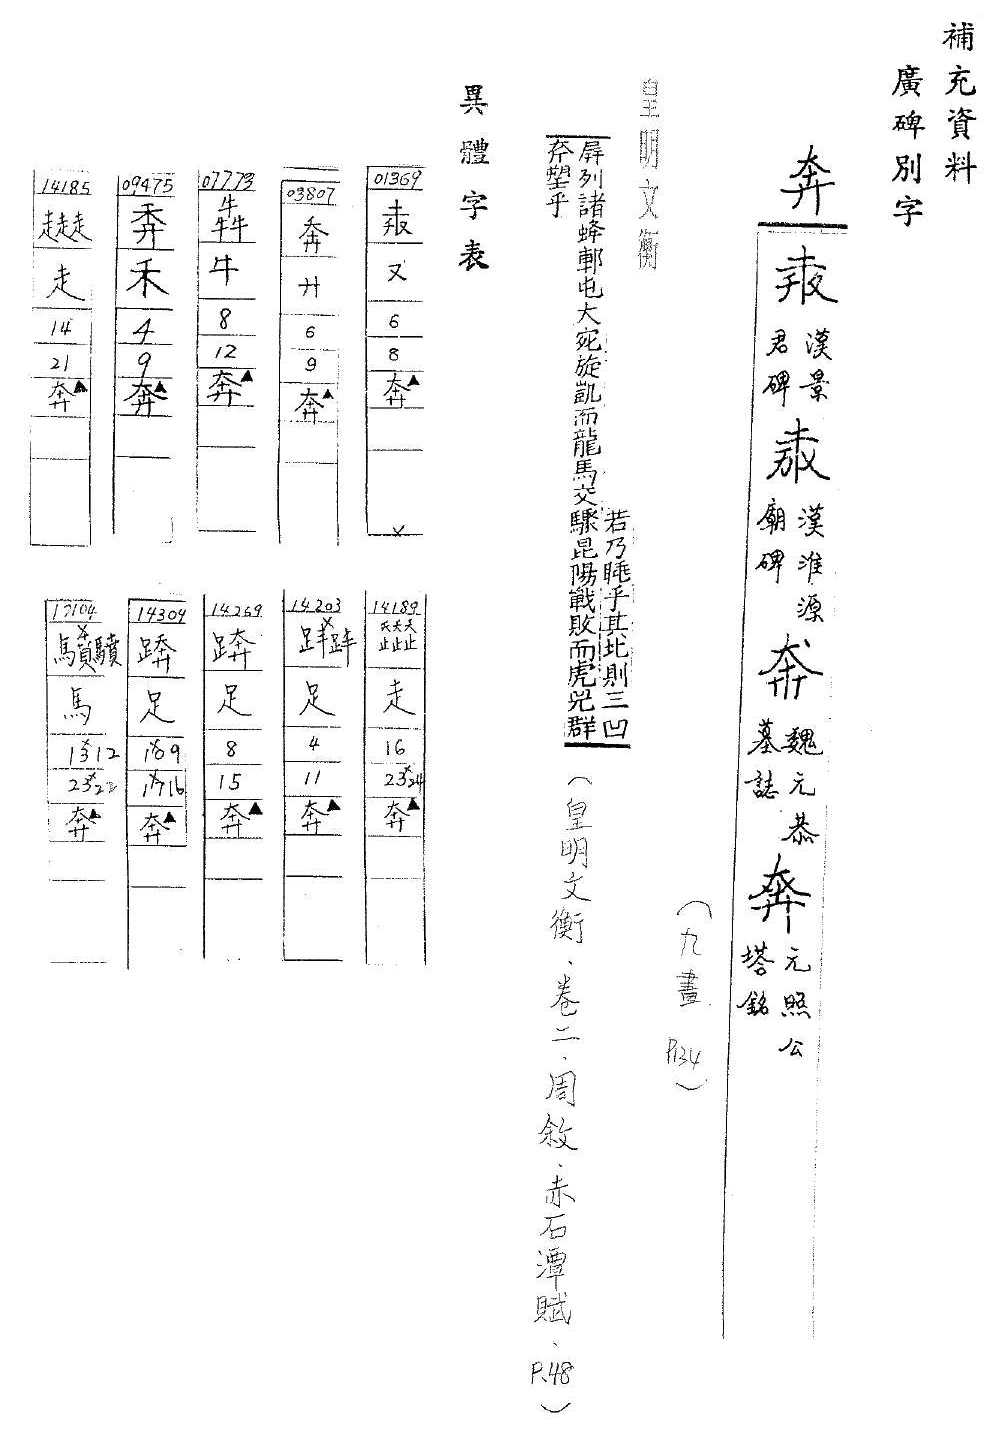 補充資料
廣碑別字
奔
漢景
君碑
漢淮源
廟碑
魏元恭
墓誌
元照公
塔銘
(九畫 P.134)
皇明文衡
若乃睡乎其北則三凹
屏列諸蜂鄆屯大宛旋凱而龍馬交驟昆陽戰敗而虎兕群
奔壁乎
(皇明文衡、卷二、周敘、赤石潭賦、P.48)
異體字表
01369
又
6
8
奔▲
03807
廾
6
9
奔▲
07773
犇
牛
8
12
奔▲
09475
禾
4
9
奔▲
14185
走
14
21
奔▲
14189
走
16
23 24
奔▲
14203
足
4
11
奔▲
14269
足
8
15
奔▲
14304
足
9
16
奔▲
17104
馬
13 12
23 22
奔▲